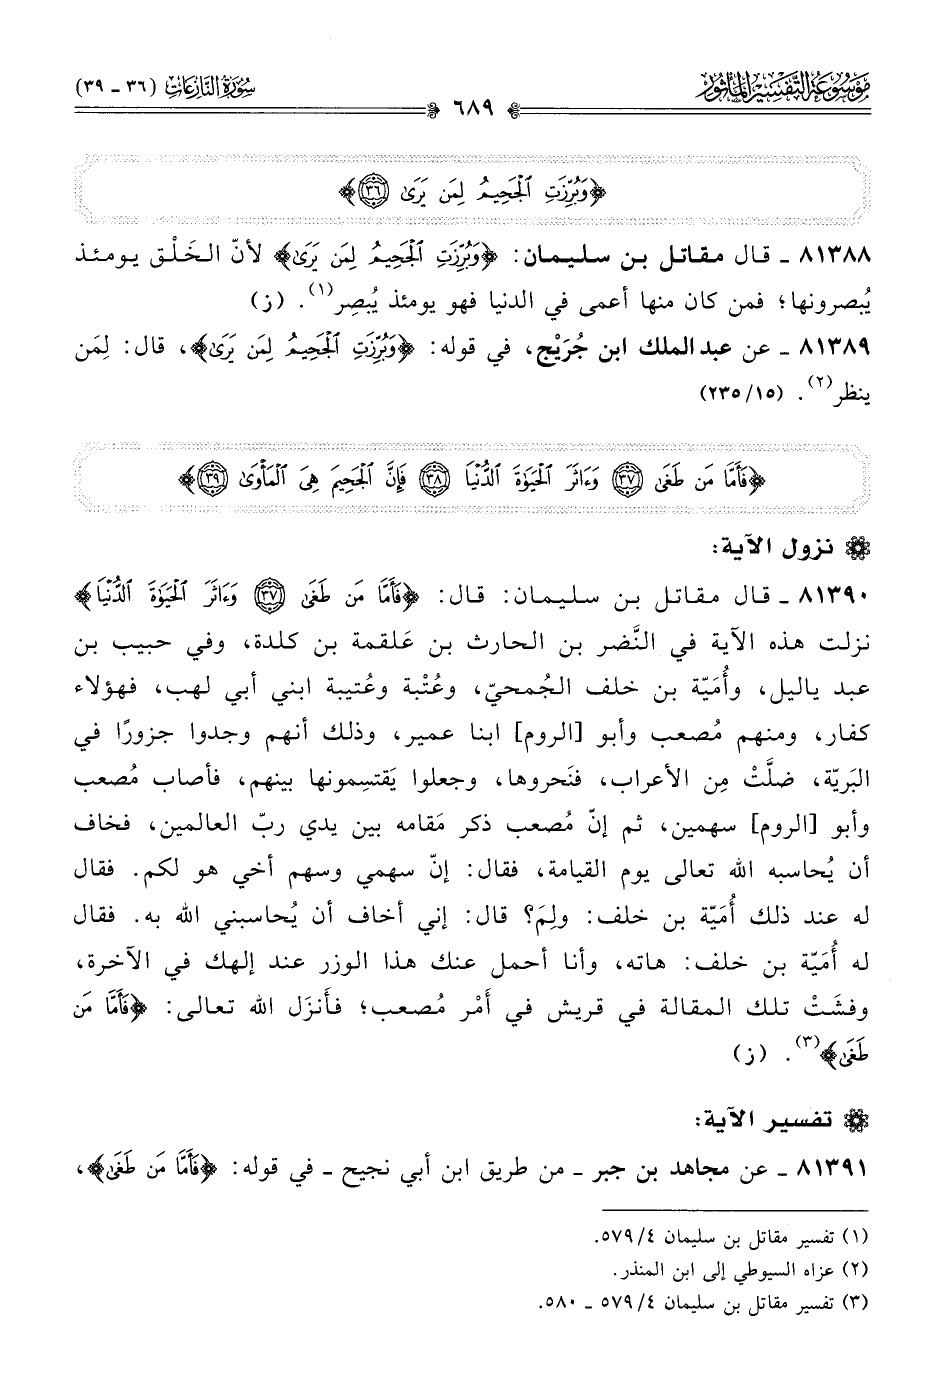 مَوْسُوعَة التَّفْسِير المَأثُور
٦٨٩
سُورَة النَّازِعَات (٣٦ - ٣٩)
﴿وَبُرِّزَتِ ٱلْجَحِيمُ لِمَن يَرَىٰ ٣٦﴾
٨١٣٨٨ - قال مقاتل بن سليمان: ﴿وَبُرِّزَتِ ٱلْجَحِيمُ لِمَن يَرَىٰ﴾ لأنّ الخَلْق يومئذ
يُبصرونها؛ فمن كان منها أعمى في الدنيا فهو يومئذ يُبصِر(١). (ز)
٨١٣٨٩ - عن عبد الملك ابن جُرَيْج، في قوله: ﴿وَبُرِّزَتِ ٱلْجَحِيمُ لِمَن يَرَىٰ﴾، قال: لِمَن
ينظر(٢). (١٥/ ٢٣٥)
﴿فَأَمَّا مَن طَغَىٰ ٣٧ وَءَاثَرَ ٱلْحَيَوٰةَ ٱلدُّنْيَا ٣٨ فَإِنَّ ٱلْجَحِيمَ هِىَ ٱلْمَأْوَىٰ ٣٩﴾
نزول الآية:
٨١٣٩٠ - قال مقاتل بن سليمان: قال: ﴿فَأَمَّا مَن طَغَىٰ ٣٧ وَءَاثَرَ ٱلْحَيَوٰةَ ٱلدُّنْيَا﴾
نزلت هذه الآية في النَّضر بن الحارث بن عَلقمة بن كلدة، وفي حبيب بن
عبد ياليل، وأُمَيّة بن خلف الجُمحيّ، وعُتْبة وعُتيبة ابني أبي لهب، فهؤلاء
كفار، ومنهم مُصعب وأبو [الروم] ابنا عمير، وذلك أنهم وجدوا جزورًا في
البَريّة، ضلَّتْ مِن الأعراب، فنَحروها، وجعلوا يَقتسِمونها بينهم، فأصاب مُصعب
وأبو [الروم] سهمين، ثم إنّ مُصعب ذكر مَقامه بين يدي ربّ العالمين، فخاف
أن يُحاسبه الله تعالى يوم القيامة، فقال: إنّ سهمي وسهم أخي هو لكم. فقال
له عند ذلك أُمَيّة بن خلف: ولِمَ؟ قال: إني أخاف أن يُحاسبني الله به. فقال
له أُمَيّة بن خلف: هاته، وأنا أحمل عنك هذا الوزر عند إلهك في الآخرة،
وفشَتْ تلك المقالة في قريش في أمْر مُصعب؛ فأَنزَل الله تعالى: ﴿فَأَمَّا مَن
طَغَىٰ﴾(٣). (ز)
تفسير الآية:
٨١٣٩١ - عن مجاهد بن جبر - من طريق ابن أبي نجيح - في قوله: ﴿فَأَمَّا مَن طَغَىٰ﴾،
(١) تفسير مقاتل بن سليمان ٤/ ٥٧٩.
(٢) عزاه السيوطي إلى ابن المنذر.
(٣) تفسير مقاتل بن سليمان ٤/ ٥٧٩ - ٥٨٠.